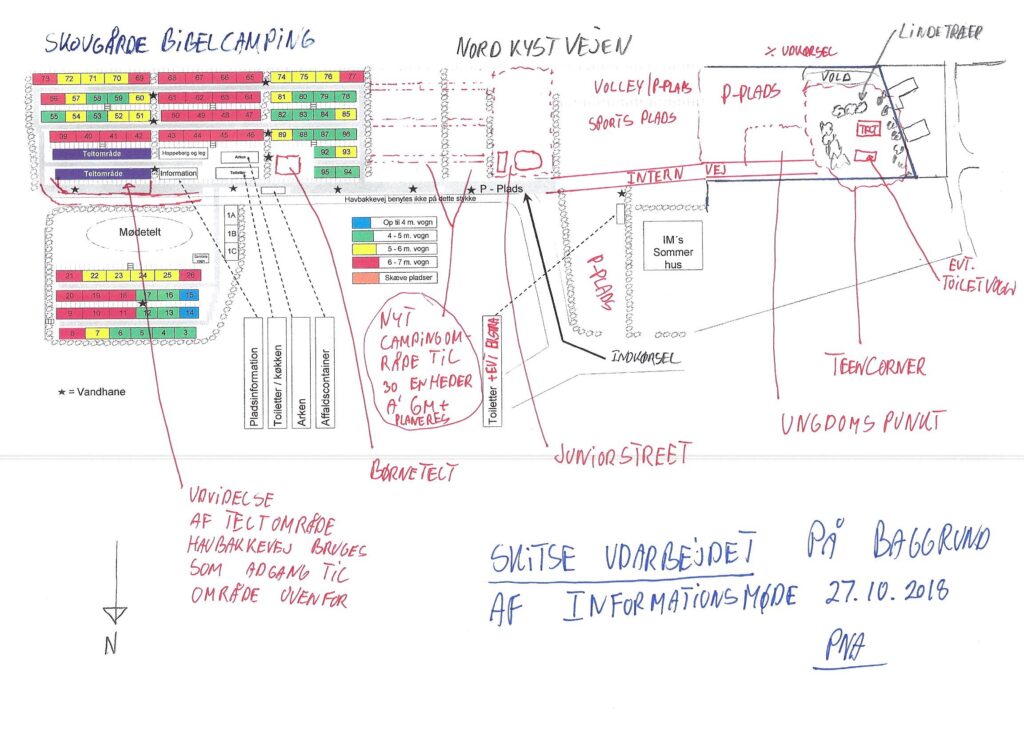 SKOVGÅRDE BIBELCAMPING
NORDKYSTVEJEN
% UDKØRSEL
LINDETRÆER
VOLD
73 72 71 70 69 68 67 66 65 74 75 76 77
56 57 58 59 60 61 62 63 64 81 80 79 78
55 54 53 52 51 82 83 84 85
39 40 41 42 43 44 45 46 89 88 87 86
92 93
95 94
Teltområde
Hoppeborg og leg
Arken
Teltområde
Information
Toiletter
VOLLEY/P-PLADS
SPORTS PLADS
P-PLADS
TELT
INTERN VEJ
P - Plads
Havbakkevej benytes ikke på dette stykke
Mødetelt
1A
1B
1C
21 22 23 24 25 26
20 19 18 17 16 15
9 10 11 12 13 14
8 7 6 5 4 3
Op til 4 m. vogn
4 - 5 m. vogn
5 - 6 m. vogn
6 - 7 m. vogn
Skæve pladser
P-PLADS
IM´s
Sommer
hus
EVT.
TOILETVOGN
NYT
CAMPINGOM-
RÅDE TIL
30 ENHEDER
Á 6M+
PLANERES
Pladsinformation
Toiletter / køkken
Arken
Affaldscontainer
Toiletter + EVT EKSTRA
INDKØRSEL
TEENCORNER
UNGDOMSPUNKT
★ = Vandhane
BØRNETELT
JUNIORSTREET
UDVIDELSE
AF TELTOMRÅDE
HAVBAKKEVEJ BRUGES
SOM ADGANG TIL
OMRÅDE OVENFOR
N
SKITSE UDARBEJDET PÅ BAGGRUND
AF INFORMATIONSMØDE 27.10.2018
PNA